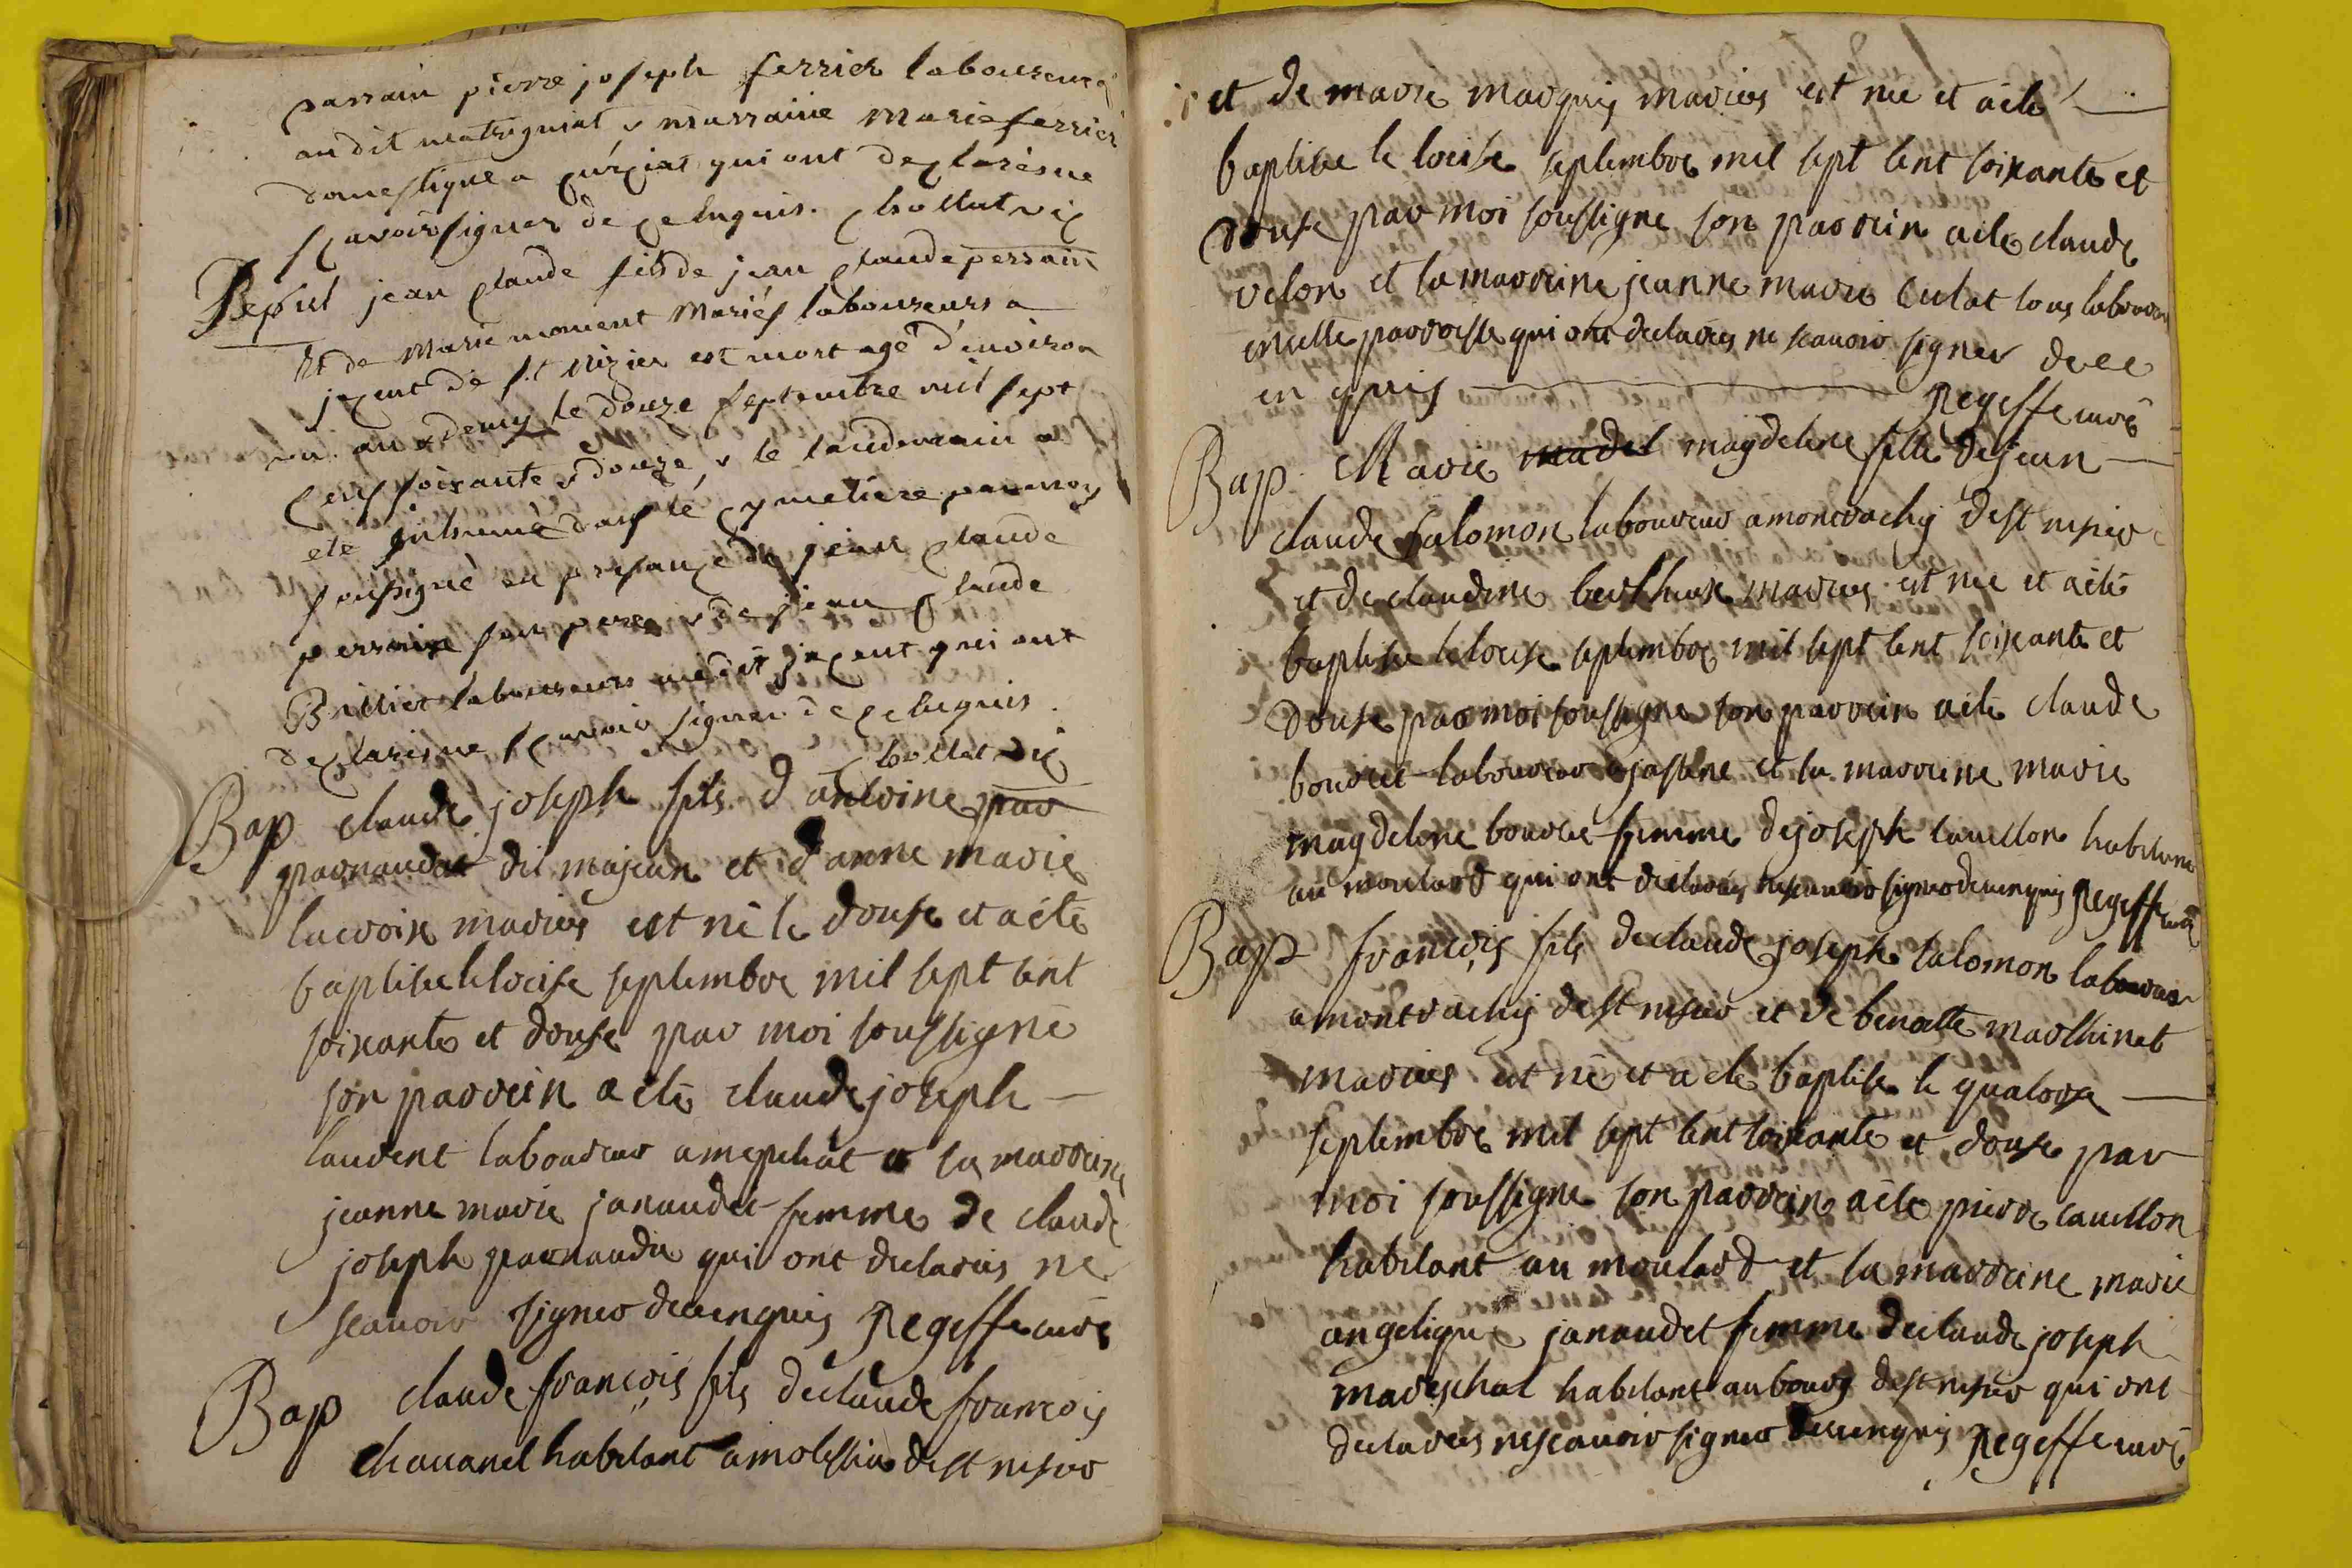 parrain pierre joseph ferrier laboureur
audit matrignat & marraine Marie ferrier
domestique a qui ont declarés ne
scavoir signer de ce enquis. chollat vic
Sepul jean claude fils de jean claude perrain
Et de Marie mariés laboureurs a
de st nizier est mort agé d'environ
un an & demy le douze septembre mil sept
cens soixante & douze, & le landemain a
eté inhumé dans le cymetiere par moy
soussigné en presance de jean claude
perrain son pere & de jean claude
laboureurs audit qui ont
declarés ne scavoir signer de ce enquis.
chollat vic
Bap claude joseph fils d'antoine par
parnaudat dit majean et d'anne marie
mariés est né le douse et a été
baptisé le treise septembre mil sept cent
soixante et douse par moi soussigné
son parrein a été claude joseph
laurent laboureur a et sa marreine
jeanne marie janaudet femme de claude
joseph qui ont declarés ne
scavoir signer de ce enquis Regeffe curé
Bap claude françois fils de claude françois
chavanel habitant a de st nisier
et de marie marquis mariés est né et a été
baptisé le treise septembre mil sept cent soixante et
douse par moi soussigné son parrein a été claude
velon et la marreine jeanne marie tous
en cette parroisse qui ont declarés ne scavoir signer de ce
en quis Regeffe curé
Bap Marie madel magdelene fille de jean
claude salomon laboureur a montrachy de st nisier
et de claudine mariés est née et a été
baptisée le treise septembre mil sept cent soixante et
douse par moi soussigné son parrein a été claude
bourcet laboureur a et la marreine marie
magdelene femme de joseph cavillon habitant
au moulard qui ont declarés ne scavoir signer de ce enquis Regeffe curé
Bap françois fils de claude joseph salomon laboureur
a montrachy de st nisier et de benoitte mathinet
mariés est né et a été baptisé le quatorse
septembre mil sept cent soixante et douse par
moi soussigné son parrein a été pierre cavillon
habitant au moulard et la marreine marie
angelique janaudet femme de claude joseph
mareschal habitant au bourg de st nisier qui ont
declarés ne scavoir signer de ce enquis Regeffe curé